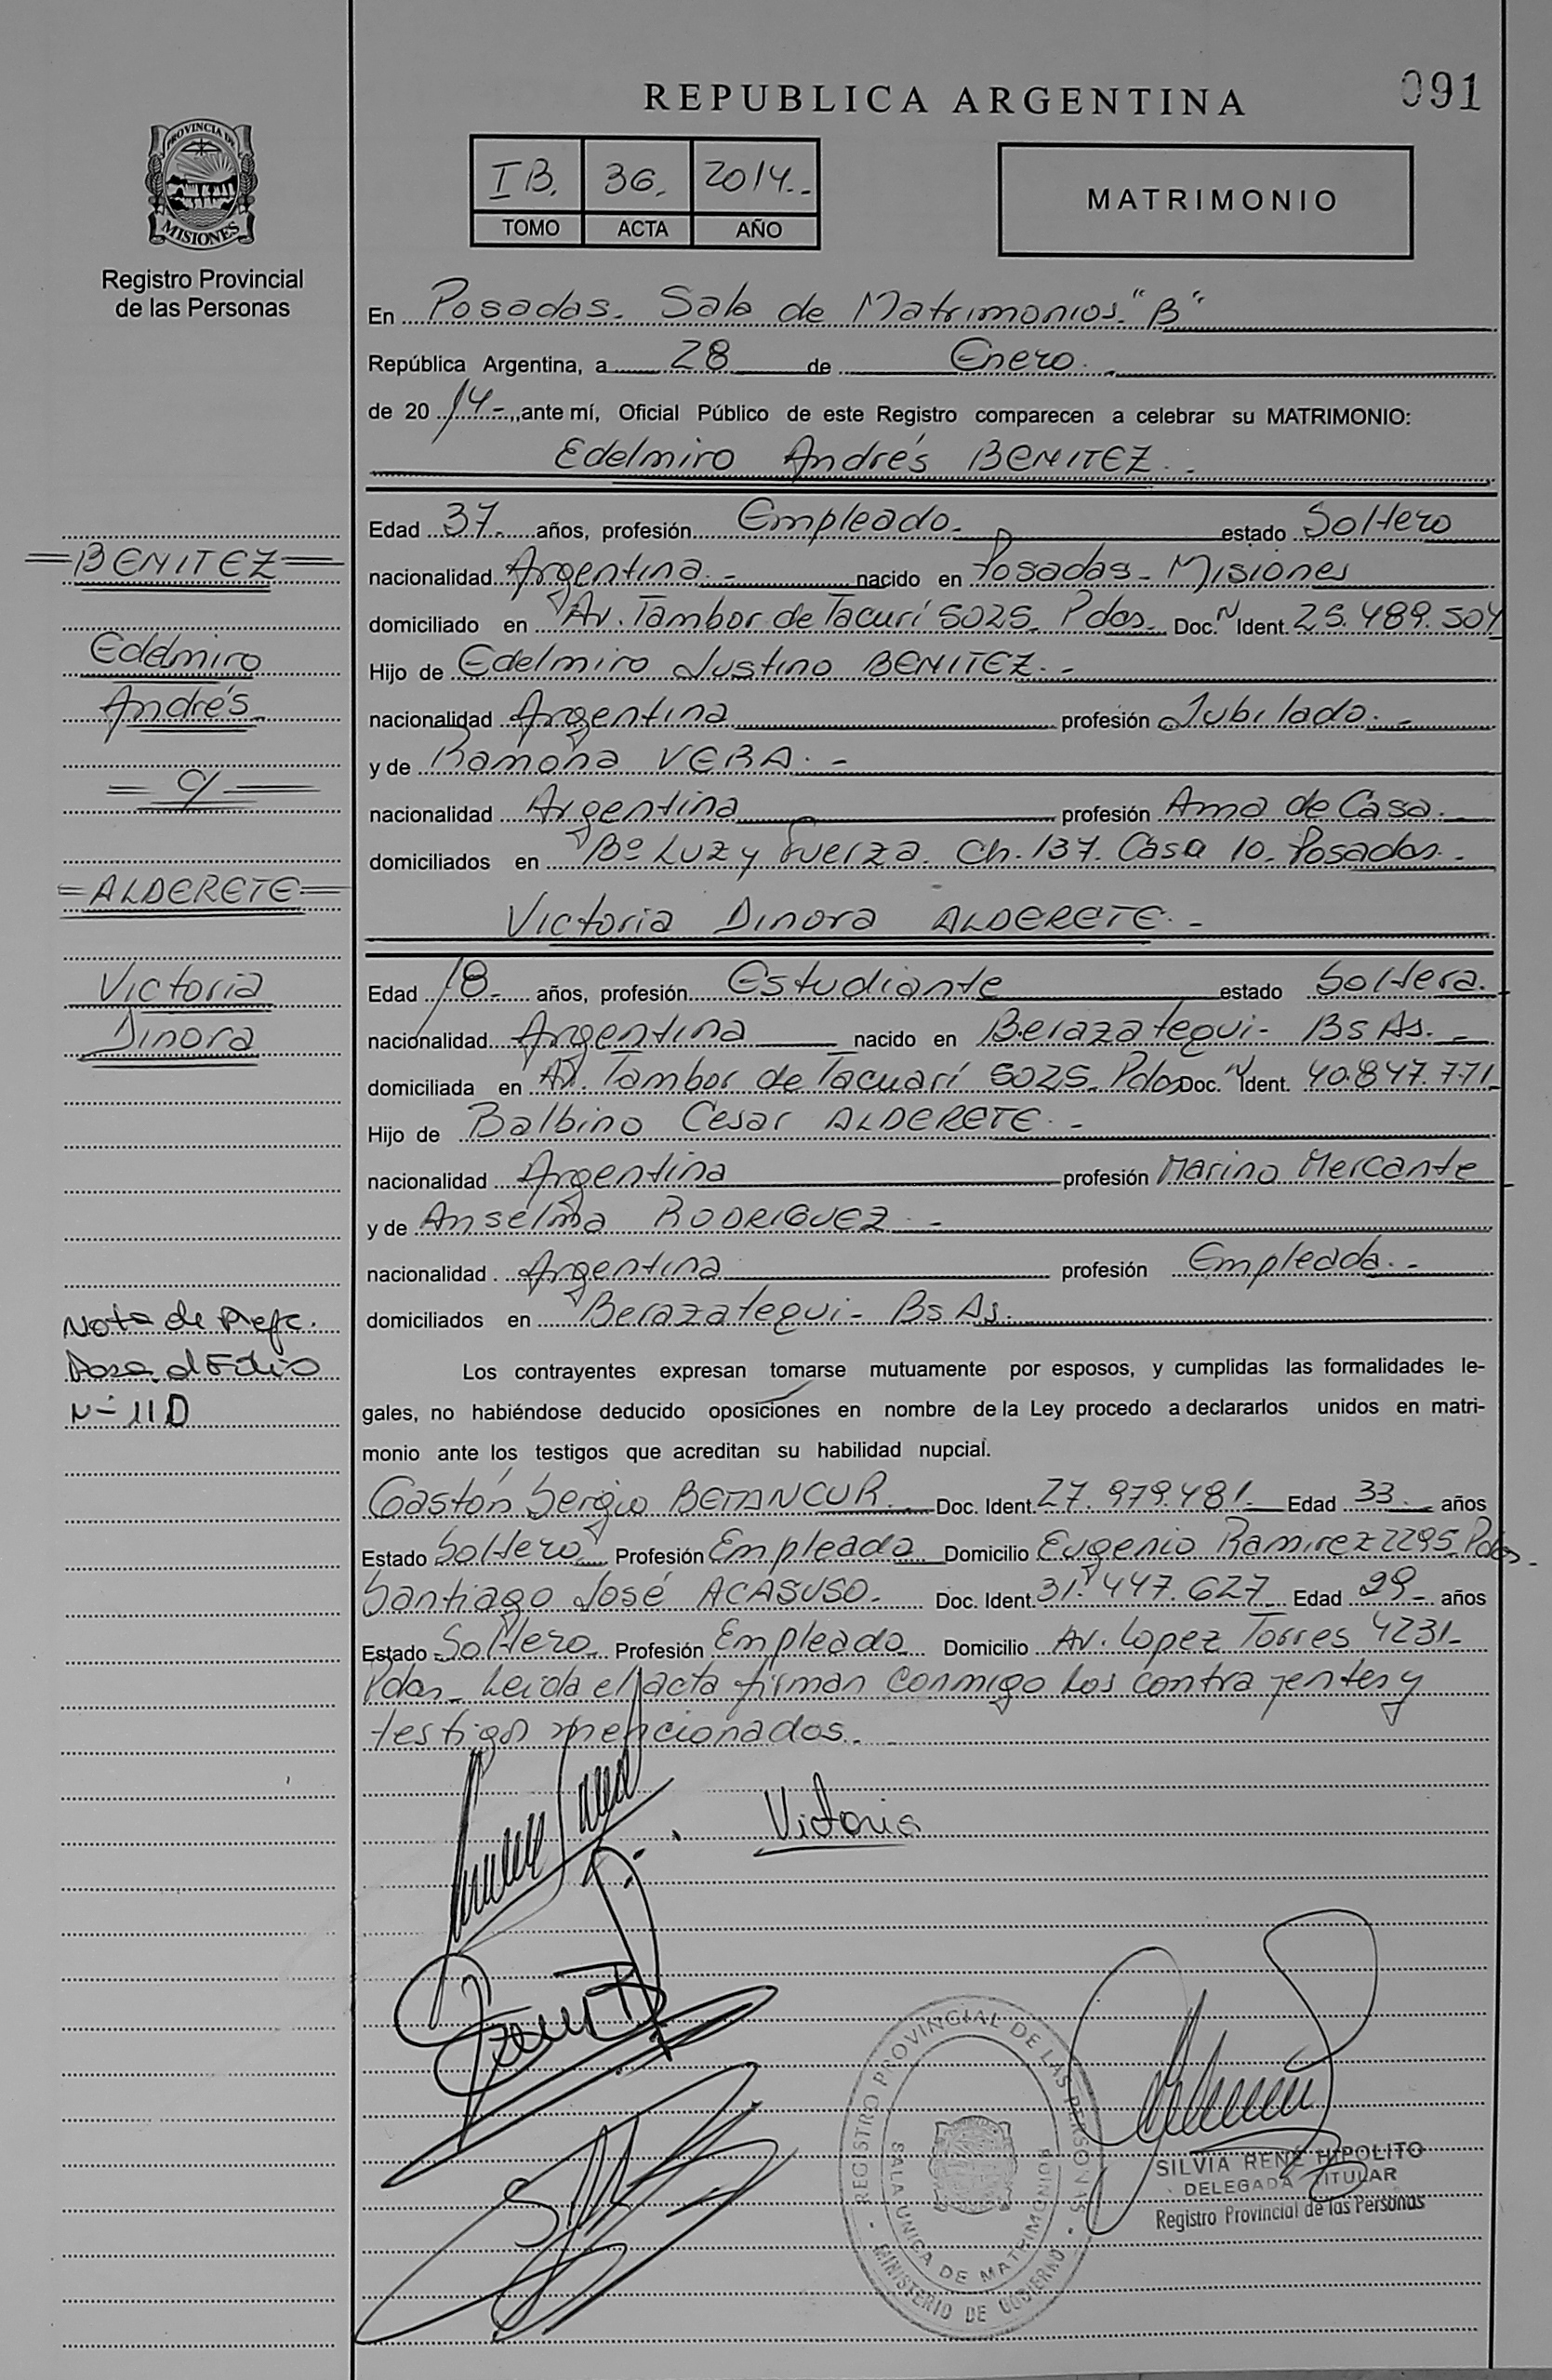 REPUBLICA ARGENTINA
091
IB. 36. 2014.-
TOMO ACTA AÑO
MATRIMONIO
PROVINCIA DE
MISIONES
Registro Provincial
de las Personas
En Posadas. Sala de Matrimonios "B"
República Argentina, a 28 de Enero.
de 20 14.-, ante mí, Oficial Público de este Registro comparecen a celebrar su MATRIMONIO:
Edelmiro Andrés BENITEZ.-
Edad 37. años, profesión Empleado.- estado Soltero
nacionalidad Argentina.- nacido en Posadas- Misiones
domiciliado en Av. Tambor de Tacurí 5025. Pdas. Doc. N Ident. 25.489.504
Hijo de Edelmiro Justino BENITEZ.-
nacionalidad Argentina profesión Jubilado.-
y de Ramona VERA.-
nacionalidad Argentina profesión Ama de Casa.
domiciliados en Bº Luz y Fuerza. Ch. 137. Casa 10. Posadas.-
Victoria Dinora ALDERETE.-
Edad 18- años, profesión Estudiante estado Soltera.
nacionalidad Argentina nacido en Berazategui- Bs As.-
domiciliada en Av. Tambor de Tacuarí 5025. Pdas Doc. N Ident. 40.847.771-
Hijo de Balbino Cesar ALDERETE.-
nacionalidad Argentina profesión Marino Mercante
y de Anselma RODRIGUEZ.-
nacionalidad Argentina profesión Empleada.-
domiciliados en Berazategui- Bs As.
Los contrayentes expresan tomarse mutuamente por esposos, y cumplidas las formalidades le-
gales, no habiéndose deducido oposiciones en nombre de la Ley procedo a declararlos unidos en matri-
monio ante los testigos que acreditan su habilidad nupcial.
Gastón Sergio BETANCUR. Doc. Ident. 27.979.481. Edad 33. años
Estado Soltero Profesión Empleado Domicilio Eugenio Ramirez 2295. Pdas.-
Santiago José ACASUSO. Doc. Ident. 31.447.627 Edad 29- años
Estado Soltero Profesión Empleado Domicilio Av. Lopez Torres 4231-
Pdas- Leida el acta firman conmigo los contrayentes y
testigos mencionados.
Victoria
=BENITEZ=
Edelmiro
Andrés
= c/ =
=ALDERETE=
Victoria
Dinora
Nota de Refe.
Pasa al Folio
N- 110
REGISTRO PROVINCIAL DE LAS PERSONAS
SALA UNICA DE MATRIMONIOS
MINISTERIO DE GOBIERNO
SILVIA RENÉ HIPOLITO
DELEGADA TITULAR
Registro Provincial de las Personas